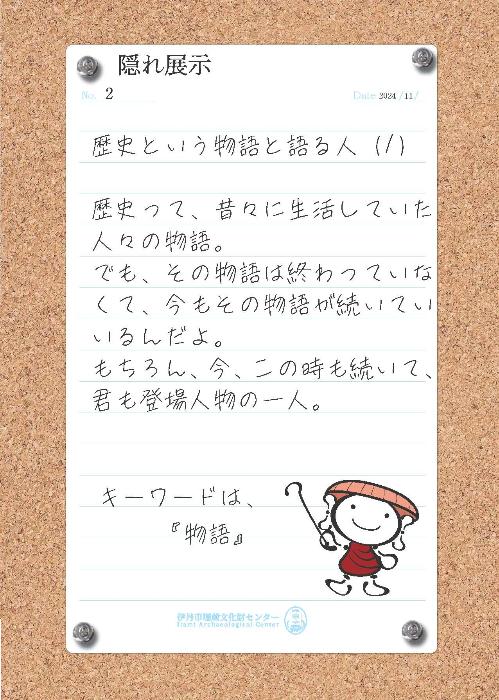 隠れ展示
No. 2
Date 2024/11/
歴史という物語と語る人 (1)
歴史って、昔々に生活していた
人々の物語。
でも、その物語は終わっていな
くて、今もその物語が続いてい
いるんだよ。
もちろん、今、この時も続いて、
君も登場人物の一人。
キーワードは、
『物語』
伊丹市埋蔵文化財センター
Itami Archaeological Center